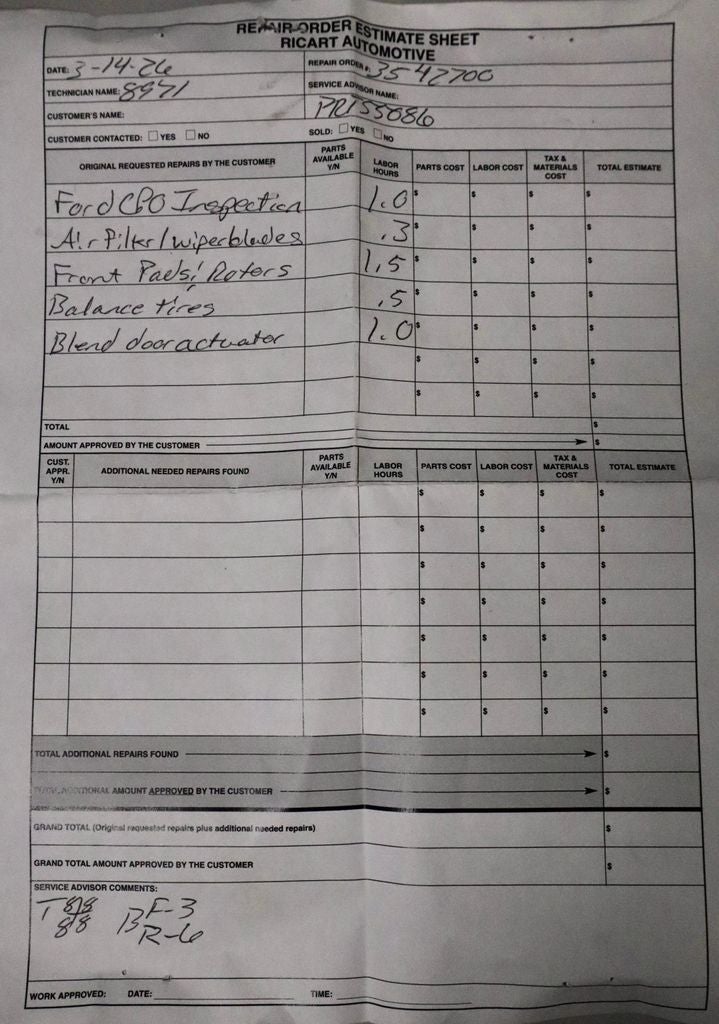 REPAIR ORDER ESTIMATE SHEET
RICART AUTOMOTIVE
DATE: 3-14-26
REPAIR ORDER #: 3542700
TECHNICIAN NAME: 8971
SERVICE ADVISOR NAME:
CUSTOMER'S NAME:
PR155086
CUSTOMER CONTACTED: ☐ YES ☐ NO
SOLD: ☐ YES ☐ NO
ORIGINAL REQUESTED REPAIRS BY THE CUSTOMER PARTS AVAILABLE Y/N LABOR HOURS PARTS COST LABOR COST TAX & MATERIALS COST TOTAL ESTIMATE
Ford CPO Inspection 1.0 $ $ $ $
Air Filter/wiperblades .3 $ $ $ $
Front Pads/Rotors 1.5 $ $ $ $
Balance tires .5 $ $ $ $
Blend door actuator 1.0 $ $ $ $
$ $ $ $
$ $ $ $
TOTAL $
AMOUNT APPROVED BY THE CUSTOMER $
CUST. APPR. Y/N ADDITIONAL NEEDED REPAIRS FOUND PARTS AVAILABLE Y/N LABOR HOURS PARTS COST LABOR COST TAX & MATERIALS COST TOTAL ESTIMATE
$ $ $ $
$ $ $ $
$ $ $ $
$ $ $ $
$ $ $ $
$ $ $ $
$ $ $ $
TOTAL ADDITIONAL REPAIRS FOUND $
TOTAL ADDITIONAL AMOUNT APPROVED BY THE CUSTOMER $
GRAND TOTAL (Original requested repairs plus additional needed repairs) $
GRAND TOTAL AMOUNT APPROVED BY THE CUSTOMER $
SERVICE ADVISOR COMMENTS:
T 8/8 B F-3
8/8 R-6
WORK APPROVED: DATE: TIME: